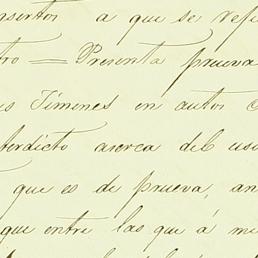 insertos a que se refi
tro = Presenta prueva
is Jimenes en autos
terdicto acerca del uso
que es de prueva, an
que entre las que á me